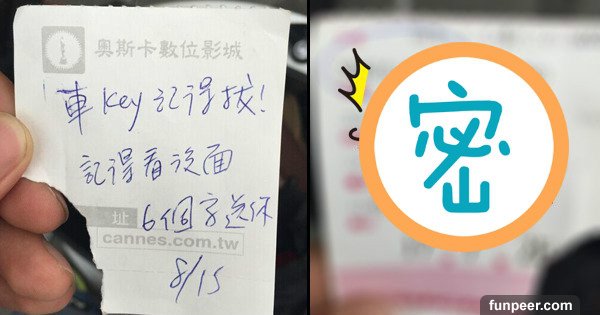 奧斯卡數位影城
車key記得拔!
記得看後面
址
6個字送你
cannes.com.tw
8/15
密
funpeer.com